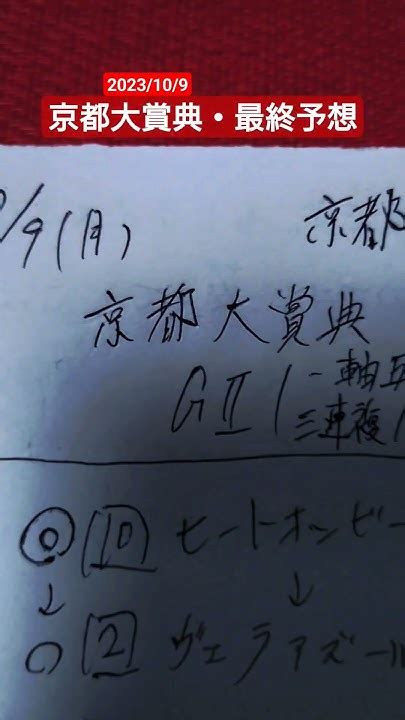 2023/10/9
京都大賞典・最終予想
/9(月) 京都
京都大賞典
GⅡ 一軸
三連複
◎ 10 ヒートオンビー
↓ ↓
○ 2 ヴェラアズール